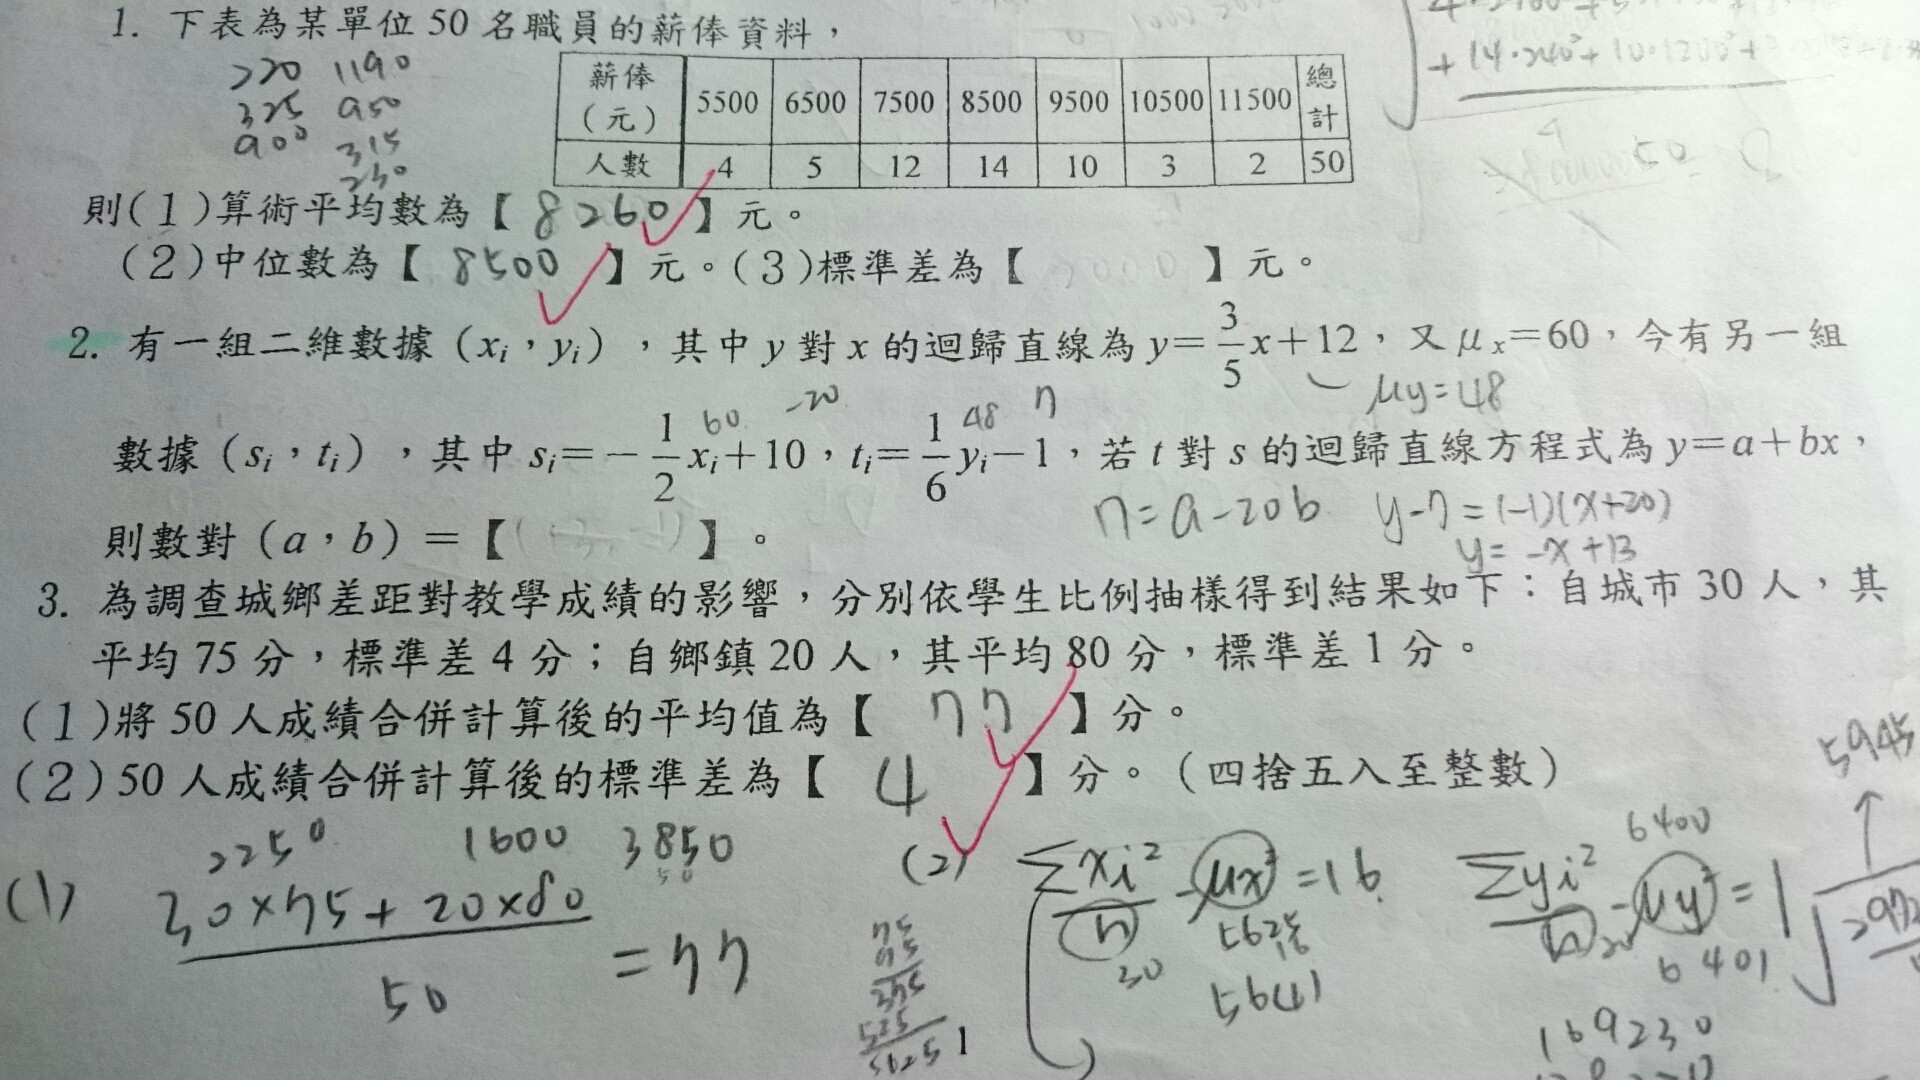 1. 下表為某單位50名職員的薪俸資料，
220 1190
325 950
900 315
250
薪俸（元） 5500 6500 7500 8500 9500 10500 11500 總計
人數 4 5 12 14 10 3 2 50
則(1)算術平均數為【 8260 】元。
(2)中位數為【 8500 】元。(3)標準差為【 】元。
2. 有一組二維數據（xᵢ，yᵢ），其中y對x的迴歸直線為y=3/5x+12，又μₓ=60，今有另一組
μy=48
60 -20 48 7
數據（sᵢ，tᵢ），其中sᵢ=-1/2xᵢ+10，tᵢ=1/6yᵢ-1，若t對s的迴歸直線方程式為y=a+bx，
7=a-20b y-7=(-1)(x+20)
則數對（a，b）=【 】。
y=-x+13
3. 為調查城鄉差距對教學成績的影響，分別依學生比例抽樣得到結果如下：自城市30人，其
平均75分，標準差4分；自鄉鎮20人，其平均80分，標準差1分。
(1)將50人成績合併計算後的平均值為【 77 】分。
(2)50人成績合併計算後的標準差為【 4 】分。（四捨五入至整數）
2250 1600 3850
50
(1) 30×75+20×80/50=77
(2) Σxi²/n-μx²=16
30 5625
16
5641
6400
Σyi²/n-μy²=1
20 6401
5945
75
75
375
525
5625
1
169230